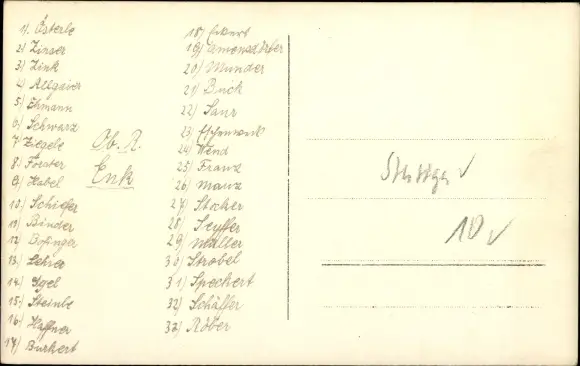 1). Österle
2) Zinser
3) Zink
4) Allgaier
5) Ehmann
6) Schwarz
7) Ziegele
8) Förster
9) Habel
10) Schiefer
11) Binder
12) Bofinger
13)
14) Igel
15) Steinle
16) Haffner
17) Burkert
Ob. R.
Enk
18) Eckert
19)
20) Munder
21) Buck
22) Saur
23)
24) Wend
25) Franz
26) Mauz
27) Stocker
28) Seyffer
29) Müller
30) Strobel
31) Speckert
32) Schäffer
33) Röber
10